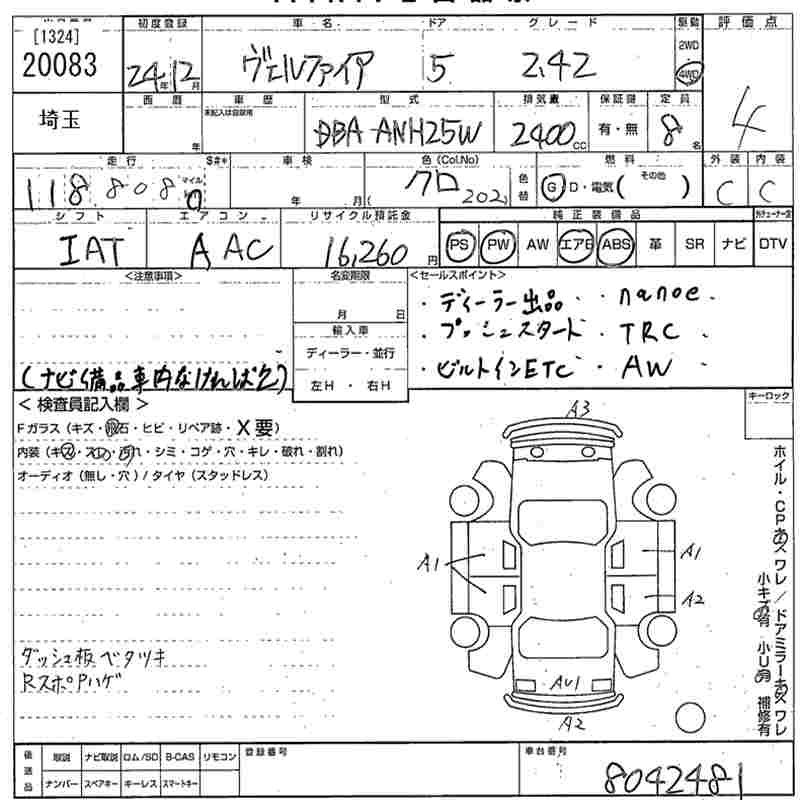 [1324]
20083
初度登録
車名
ドア
グレード
駆動
評価点
24年12月
ヴェルファイア
5
2.4Z
2WD
4WD
4
埼玉
西暦
車歴
型式
排気量
保証書
定員
未記入は自家用
年
DBA-ANH25W
2400cc
有・無
8名
走行
S#*
車検
色(Col.No)
色替
燃料
外装
内装
118808 0
マイル
年
月
クロ
(202)
G・D・電気(その他)
C
C
シフト
エアコン
リサイクル預託金
純正装備品
IAT
AAC
16,260円
PS
PW
AW
エアB
ABS
革
SR
ナビ
DTV
<注意事項>
名変期限
<セールスポイント>
月
日
・ディーラー出品
・nanoe.
輸入車
・プッシュスタート
・TRC
ディーラー・並行
・ビルトインETC
・AW
(ナビ備品車内なければ欠)
左H・右H
<検査員記入欄>
キーロック
Fガラス(キズ・飛石・ヒビ・リペア跡・X要)
内装(キズ・スレ・汚れ・シミ・コゲ・穴・キレ・破れ・割れ)
オーディオ(無し・穴)/タイヤ(スタッドレス)
A3
A1
A1
A2
AU1
A2
ホイル・CPキズワレ/ドアミラーキズワレ
小キズ有 小U有 補修有
ダッシュ板ベタツキ
RスポPハゲ
後送品
取説
ナビ取説
ロム/SD
B-CAS
リモコン
登録番号
車台番号
ナンバー
スペアキー
キーレス
スマートキー
8042481